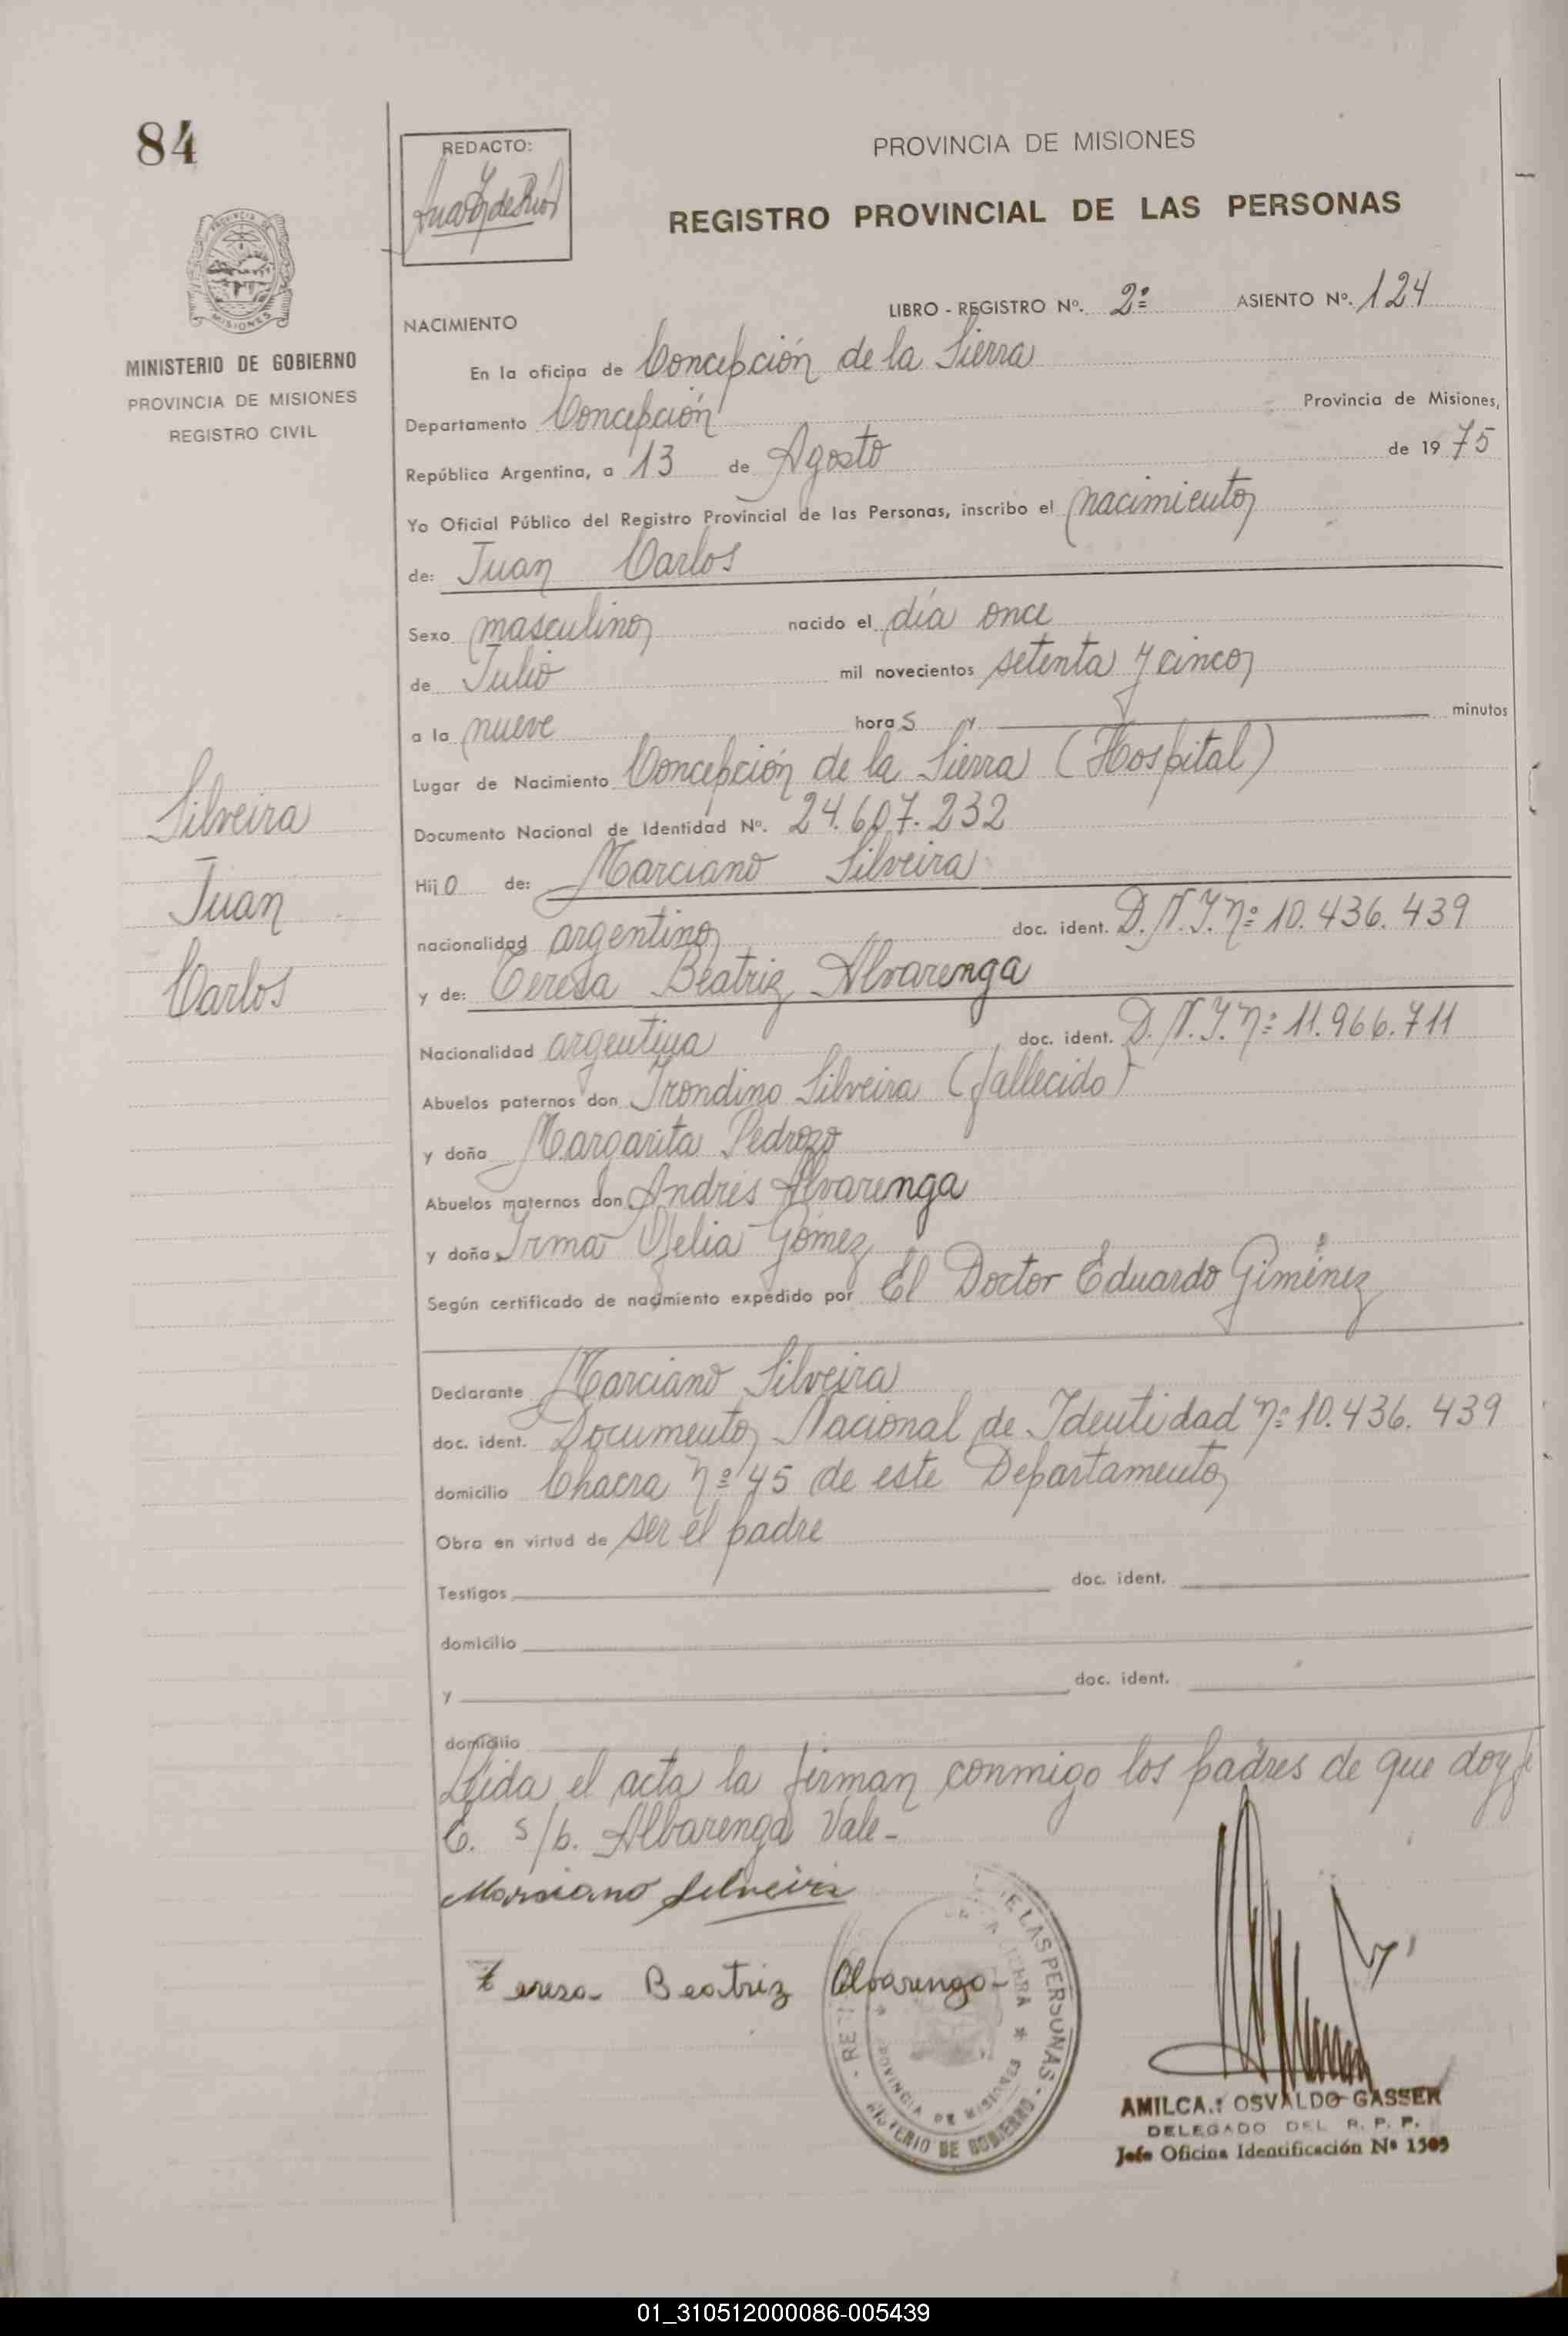 84
REDACTO:
PROVINCIA DE MISIONES
REGISTRO PROVINCIAL DE LAS PERSONAS
MISIONES
MINISTERIO DE GOBIERNO
PROVINCIA DE MISIONES
REGISTRO CIVIL
LIBRO - REGISTRO Nº. 2º ASIENTO Nº. 124
NACIMIENTO
En la oficina de Concepción de la Sierra
Departamento Concepción Provincia de Misiones,
República Argentina, a 13 de Agosto de 1975
Yo Oficial Público del Registro Provincial de las Personas, inscribo el nacimiento
de: Juan Carlos
Sexo masculino nacido el día once
de Julio mil novecientos setenta y cinco
a la nueve horas y minutos
Lugar de Nacimiento Concepción de la Sierra (Hospital)
Documento Nacional de Identidad Nº. 24.607.232
Hijo de: Marciano Silveira
nacionalidad argentino doc. ident. D.N.I. nº 10.436.439
y de: Teresa Beatriz Alvarenga
Nacionalidad argentina doc. ident. D.N.I. nº 11.966.711
Abuelos paternos don Irondino Silveira (fallecido)
y doña Margarita Pedrozo
Abuelos maternos don Andrés Alvarenga
y doña Irma Ofelia Gómez
Según certificado de nacimiento expedido por El Doctor Eduardo Giménez
Silveira
Juan
Carlos
Declarante Marciano Silveira
doc. ident. Documento Nacional de Identidad nº 10.436.439
domicilio Chacra nº 45 de este Departamento
Obra en virtud de ser el padre
Testigos doc. ident.
domicilio
y doc. ident.
domicilio
Leída el acta la firman conmigo los padres de que doy fe
E. s/b. Albarenga Vale-
Marciano Silveira
Teresa Beatriz Alvarenga
E LAS PERSONAS -
PROVINCIA DE MISIONES
DE GOBIERNO
OSVALDO GASSER
DELEGADO DEL R. P. P.
Jefe Oficina Identificación Nº 1505
01_310512000086-005439